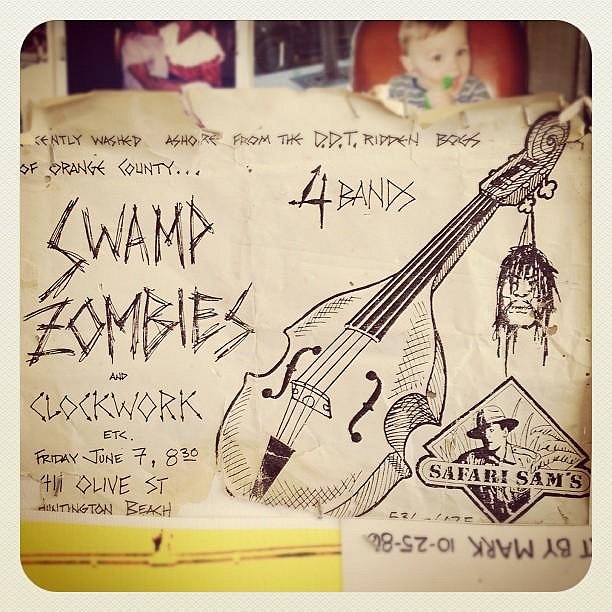 CENTLY WASHED ASHORE FROM THE D.D.T. RIDDEN BOGS
OF ORANGE COUNTY...
4 BANDS
SWAMP
ZOMBIES
AND
CLOCKWORK
ETC.
FRIDAY JUNE 7, 8:30
411 OLIVE ST
HUNTINGTON BEACH
SAFARI SAM'S
T BY MARK 10-25-86